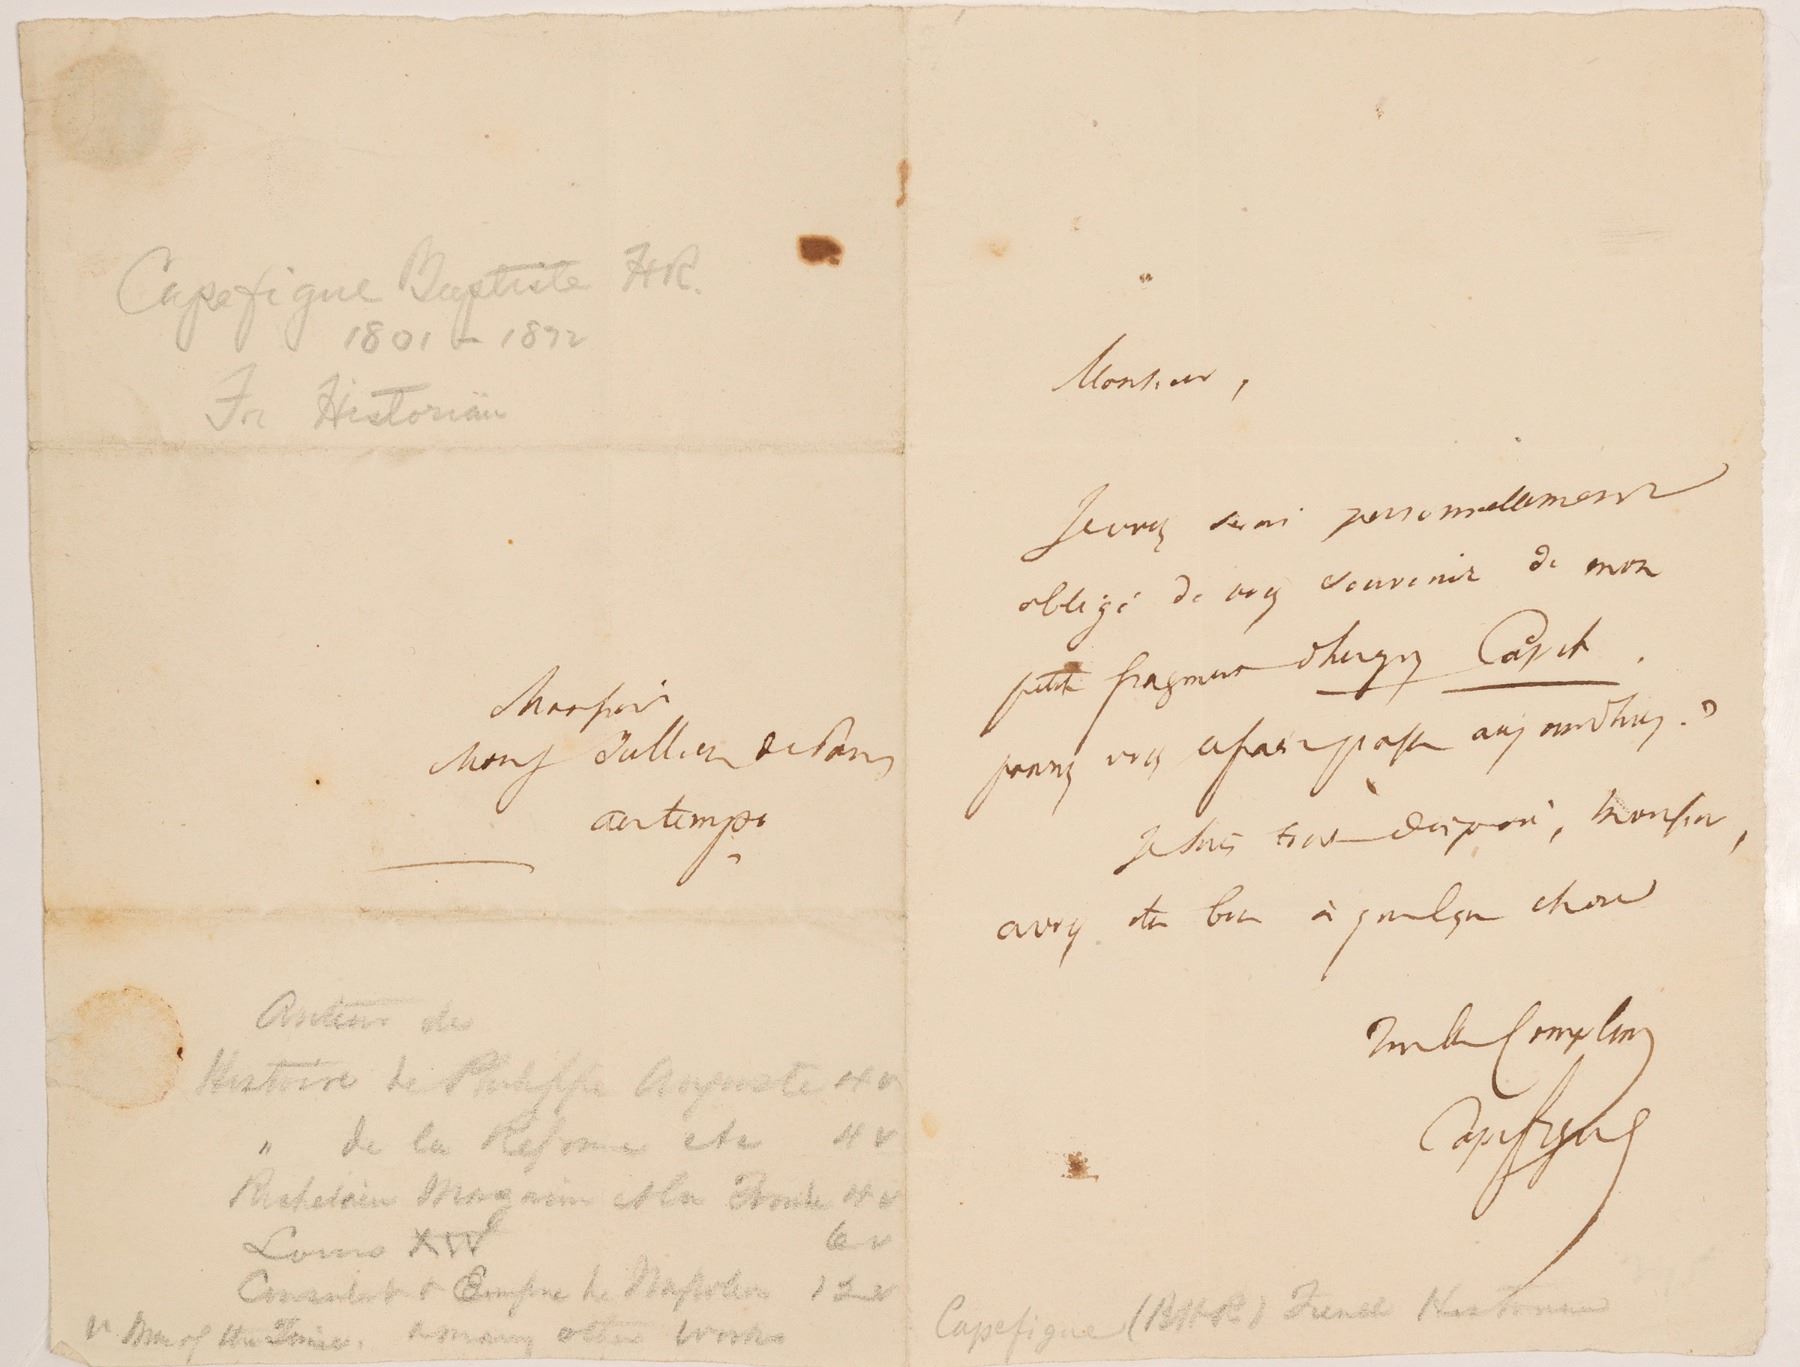 Capefigue Baptiste H R.
1801 – 1872
Fr Historian
Monsieur
Mons Jullien de Paris
au temps
Auteur de
Histoire de Philippe Auguste 4 v
" de la Réforme etc 4 v
Richelieu Mazarin et la Fronde 4 v
Louis XIV 6 v
Consulat & Empire de Napoleon 12 v
v Men of the Time. & many other works
Monsieur,
Je vous serai personnellement
obligé de vous souvenir de mon
petit fragment Capet.
vous aujourdhuy.?
Je suis Monsieur,
avous à quelque chose
Capefigue
Capefigue (BHR) French Historian